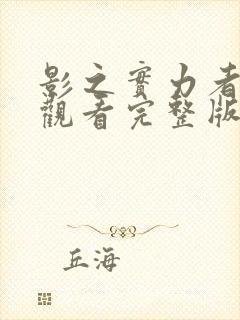 影之實力者
觀看完整版
丘海